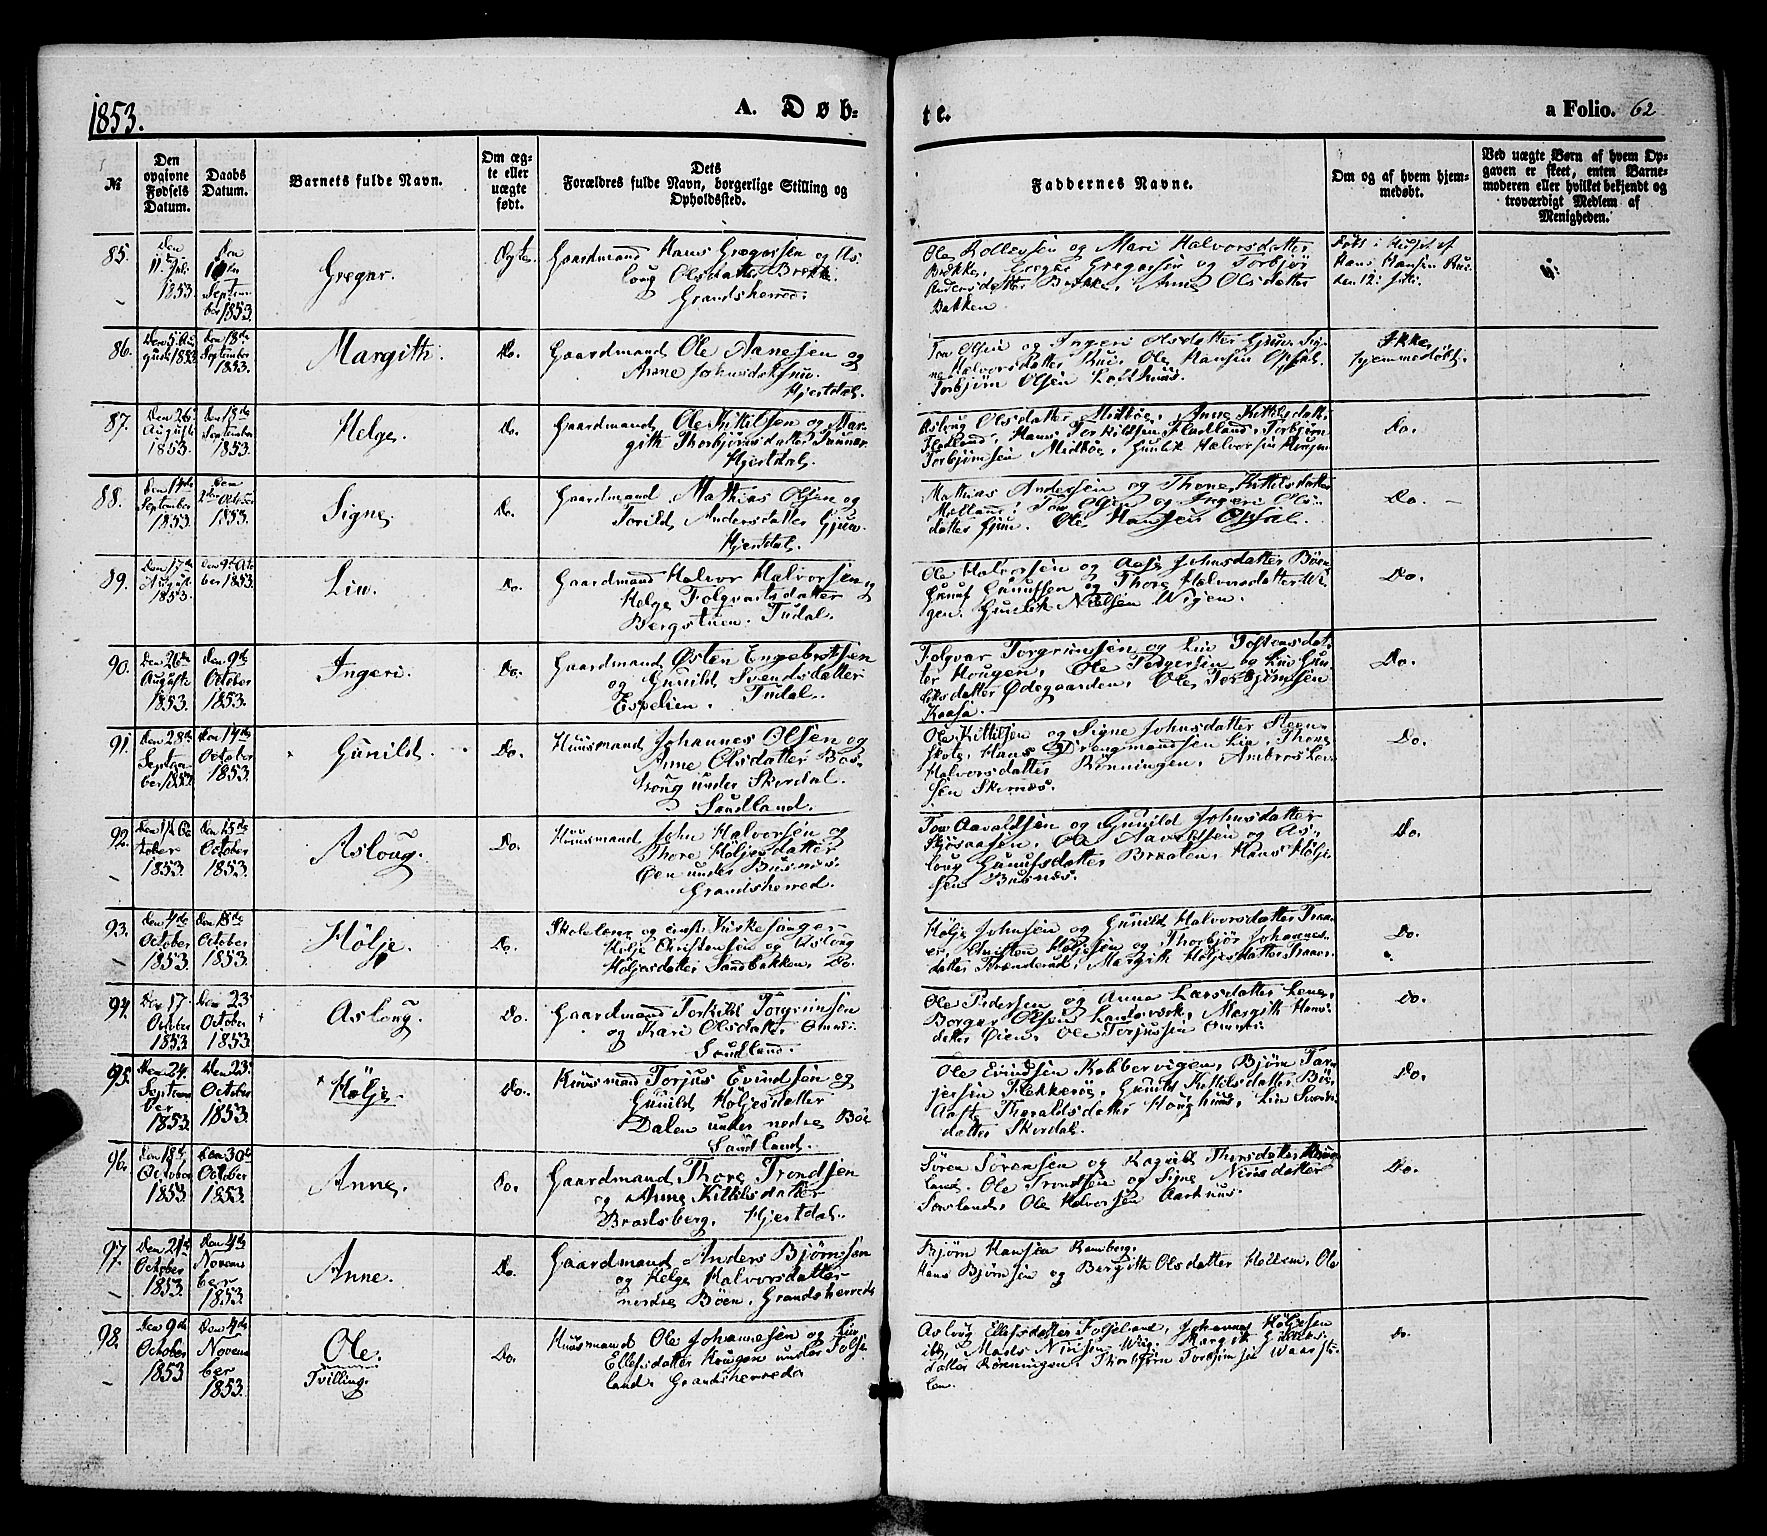 1853.
A. Døb-
te.
a Folio. 62
№
Den opgivne Fødsels Datum.
Daabs Datum.
Barnets fulde Navn.
Om ægte eller uægte født.
Dets Forældres fulde Navn, borgerlige Stilling og Opholdssted.
Faddernes Navne.
Om og af hvem hjemmedøbt.
Ved uægte Børn af hvem Opgaven er skeet, enten Barnemoderen eller hvilket bekjendt og troværdigt Medlem af Menigheden.
85.
Den
11. Juli
1853
Den
Septem
ber 1853.
Gregar.
Ægte.
Gaardmand Hans Gregarsen og As
loug Olsdatter Brekke.
Grandsherred.
Ole Rollefsen og Mari Halvorsdatter
Brekke, Gregar Gregarsen og Torbjør
Andersdatter Brekke, Anne Olsdatter
Bakken
Døbt i Huset af
Hans Hansen
den 12: Juli.
86.
Den 5 Au
gust 1853
Den 18de
September
1853.
Margith.
Do.
Gaardmand Ole Aanesen og
Anne Johnsdatter
Hjertdal.
Tov Olsen og Ingeri Olsdatter Gjuv, Sig-
ne Halvorsdatter, Ole Hansen Opsal,
Torbjørn Olsen Lofthuus.
Ikke
hjemmedøbt.
87.
Den 26
August
1853.
Den 18de
September
1853.
Helge.
Do.
Gaardmand Ole Kittilsen og Mar-
gith Thorbjørnsdatter
Hjertdal.
Asloug Olsdatter Midbøe, Anne Kittilsdatt.
Fladland, Hans Torkildsen Fladland, Torbjørn
Torbjørnsen Midbøe, Gunlik Halvorsen
Do.
88.
Den 14de
September
1853.
Den
2den October
1853.
Signe.
Do.
Gaardmand Mathias Olsen og
Torild Andersdatter Gjuv.
Hjertdal.
Mathias Andersen og Thone Kittilsdatter
Mælland, Tov Olsen og Ingeri Ols-
datter Gjuv. Ole Hansen Opsal.
Do. –
89.
Den 17de
August
1853.
Den 9de Octo
ber 1853.
Liv.
Do.
Gaardmand Halvor Halvorsen og
Helge Folqvarsdatter
Bergstuen. Tudal.
Ole Halvorsen og Aase Johnsdatter Bøen,
Gunuf Gunufsen og Thore Halvorsdatter Wi-
gen. Gunlik Nielsen Wigen.
Do.
90.
Den 26de
August
1853.
Den 9de
October
1853.
Ingeri.
Do.
Gaardmand Østen Engebretsen
og Gunild Svendsdatter
Espelien. Tudal.
Folqvar Torgrimsen og Liv Jostensdat-
ter Hougen, Ole Pedersen og Liv Gun-
leksdatter Ødegaarden, Ole Torbjørnsen
Kaasa.
Do.
91.
Den 28de
Septem-
ber 1853.
Den 14de
October
1853.
Gunild.
Do.
Huusmand Johannes Olsen og
Anne Olsdatter
under Skordal.
Saudland.
Ole Kittilsen og Signe Johnsdatter Steen-
skote, Hans Drengmandsen Lia, Thone
Halvorsdatter Rønningen, Ambros Lev-
sen Skernæs.
Do.
92.
Den 1ste Oc
tober
1853.
Den 15de
October
1853.
Asloug.
Do.
Huusmand John Halvorsen og
Thore Høljesdatter
Øen under Busnes.
Grandsherred.
Tov Aavaldsen og Gunild Johnsdatter
Bjøraasen, Ole Aavaldsen og As-
loug Gunufsdatter Braaten, Hans Hølje
sen Busnæs.
Do.
93.
Den 4de
October
1853.
Den 15de
October
1853.
Hølje.
Do.
Skolelærer og const. Kirkesanger
Hølje Christensen og Asloug
Høljesdatter Sandbakken, Do.
Hølje Johnsen og Gunild Halvorsdatter Traa-
er, Christen Høljesen og Thorbjør Johannes-
datter Trænderud, Margith Høljesdatter Traaer.
Do.
94.
Den 17.
October
1853.
Den 23
October
1853.
Asloug.
Do.
Gaardmand Torkild Torgrimsen
og Kari Olsdatter Omnes.
Saudland.
Ole Pedersen og Anne Larsdatter Lene,
Borgar Olsen, Margith Hans-
datter Øien, Ole Torjussen Omnes.
Do.
95.
Den 24.
Septem
ber
1853.
Den 23.
October
1853.
Hølje.
Do.
Huusmand Torjus Evindsen og
Gunild Høljesdatter
Dalen under nedre Bøe
Saudland.
Ole Evindsen Kobbervigen, Bjørn Tar-
jersen Flekkerøe, Gunild Kittilsdatter Bøe,
Aaste Tharaldsdatter Houghuus, Liv Svends-
datter Skordal.
Do.
96.
Den 18.
October
1853.
Den 30te
October
1853.
Anne.
Do.
Gaardmand Thore Trondsen
og Anne Kittilsdatter
Bradsberg. Hjertdal.
Søren Sørensen og Ragnild Thorsdatter
land. Ole Trondsen og Signe Nirisdatter
Sovland, Ole Halvorsen Aarhuus.
Do.
97.
Den 21de
October
1853.
Den 4de
Novem
ber
1853.
Anne.
Do.
Gaardmand Anders Bjørnsen
og Helge Halvorsdatter
nedre Bøen. Grandsherred
Bjørn Hansen Ramberg.
Hans Bjørnsen og Bergith Olsdatter Hollem, Ole
98.
Den 9de
October
1853
Den 4de
Novem
ber
1853.
Ole.
Tvilling.
Do.
Huusmand Ole Johannesen og
Ellefsdatter Hougen under Folse
land. Grandsherred
Asloug Ellefsdatter Folseland, Johannes Høljesen
ibid, Mads Nirisen Wig. Margit Gulleks-
datter Rønningen, Thorbjørn Torbjørnsen Waarst-
len.
Do.